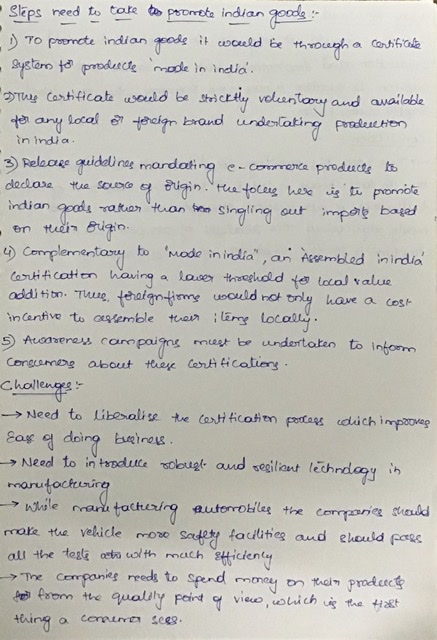 Steps need to take to promote indian goods :-
1) To promote indian goods it would be through a certificate
System for products 'made in india'.
2) This Certificate would be strictly voluntary and available
for any local or foreign brand undertaking production
in india.
3) Release guidelines mandating e-commerce products to
declare the source of origin. The focus here is to promote
indian goods rather than singling out imports based
on their origin.
4) Complementary to "made in india", an Assembled in india
Certification having a lower threshold for local value
addition. Thus, foreign firms would not only have a cost
incentive to assemble their items locally.
5) Awareness campaigns must be undertaken to inform
Consumers about these certifications.
Challenges :-
→ Need to liberalise the certification process which improves
Ease of doing business.
→ Need to introduce robust and resilient technology in
manufacturing
→ While manufacturing automobiles the companies should
make the vehicle more safety facilities and should pass
all the tests with much efficiency
→ The companies needs to spend money on their products
from the quality point of view, which is the first
thing a consumer sees.